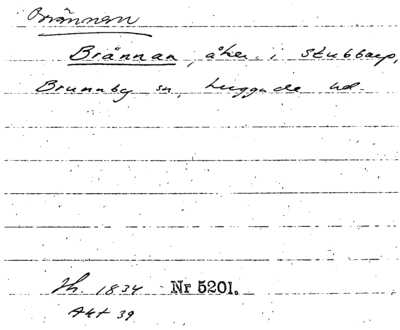 Brännan
Brännan, åker i Stubbarp,
Brunnby sn, Luggude hd.
Th. 1834 Nr 5201.
Akt 39